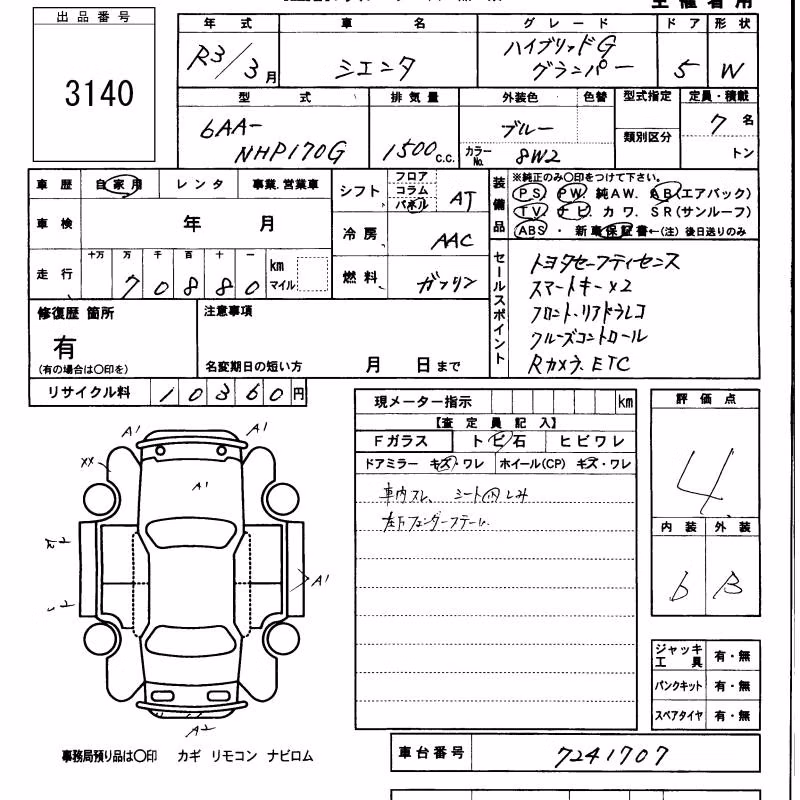 出品番号
3140
年式 車名 グレード ドア 形状
R3/3月 シエンタ ハイブリッドG グランパー 5 W
型式 排気量 外装色 色替 型式指定 定員・積載
6AA-NHP170G 1500c.c. ブルー 類別区分 7名
カラーNo. 8W2 トン
車歴 自家用 レンタ 事業.営業車
シフト フロア コラム パネル AT
車検 年 月
冷房 AAC
走行 十万 万 千 百 十 一 km マイル
70880
燃料 ガソリン
装備品
※純正のみ○印をつけて下さい。
PS. PW. 純AW. AB(エアバック)
TV. ナビ. カワ. SR(サンルーフ)
ABS ・ 新車保証書←(注) 後日送りのみ
セールスポイント
トヨタセーフティセンス
スマートキー×2
フロント.リアドラレコ
クルーズコントロール
Rカメラ. ETC
修復歴 箇所
有
(有の場合は○印を)
注意事項
名変期日の短い方 月 日まで
リサイクル料 10360円
現メーター指示 km
【査定員記入】
Fガラス トビ石 ヒビワレ
ドアミラー キズ・ワレ ホイール(CP) キズ・ワレ
車内スレ、シート内しみ
評価点
4
内装 外装
b B
A1 A1
XX
A1
A1
A2
ジャッキ工具 有・無
パンクキット 有・無
スペアタイヤ 有・無
事務局預り品は○印 カギ リモコン ナビロム
車台番号 7241707